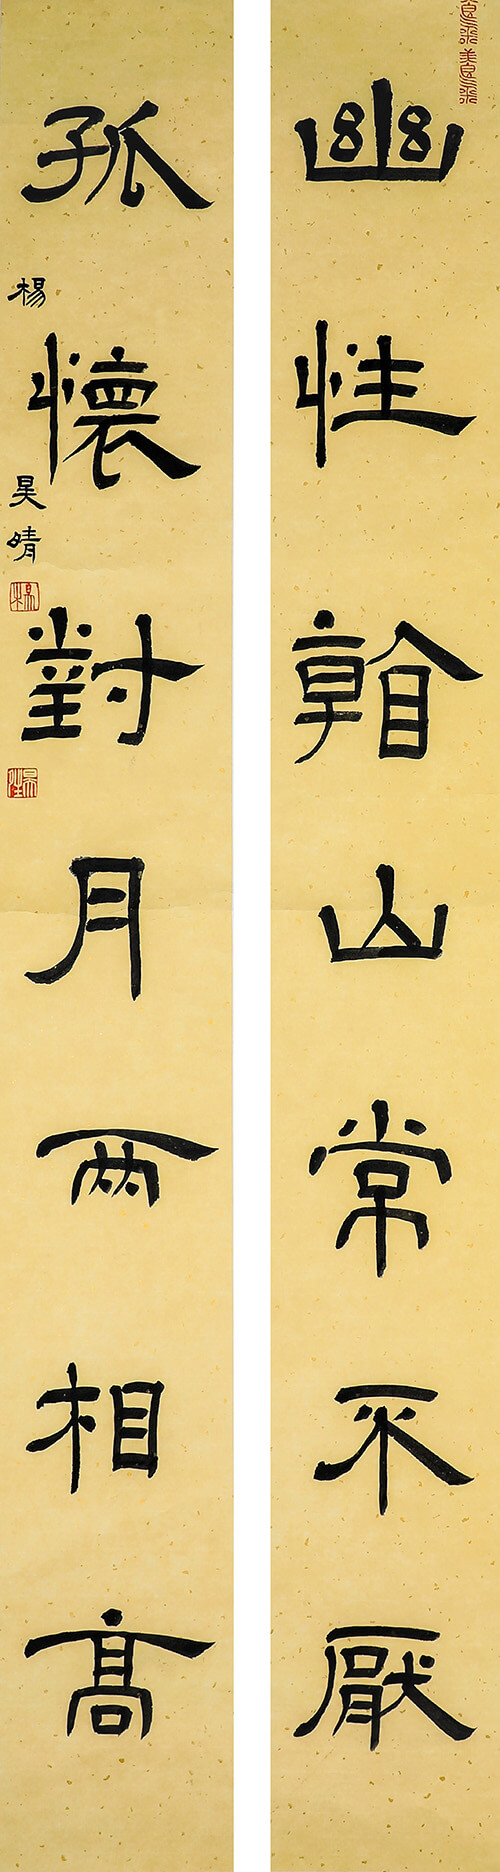 幽性看山常不厭
孤懷對月兩相高
楊昊晴